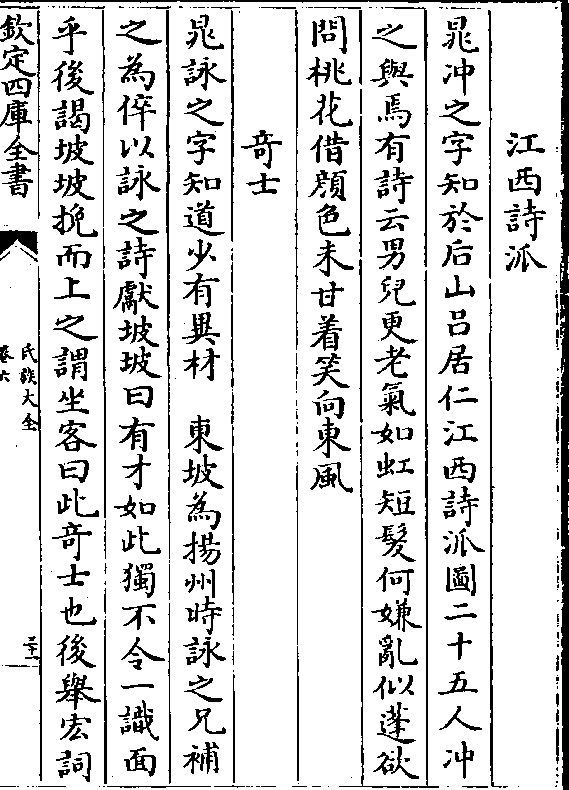 江西詩派
晁冲之字知於后山吕居仁江西詩派圖二十五人冲
之與焉有詩云男兒更老氣如虹短髮何嫌亂似蓬欲
問桃花借顔色未甘着笑向東風
竒士
晁詠之字知道少有異材　東坡為揚州時詠之兄補
之為倅以詠之詩獻坡坡曰有才如此獨不令一識面
乎後謁坡坡挽而上之謂坐客曰此竒士也後舉宏詞
欽定四庫全書
氏族大全
卷六